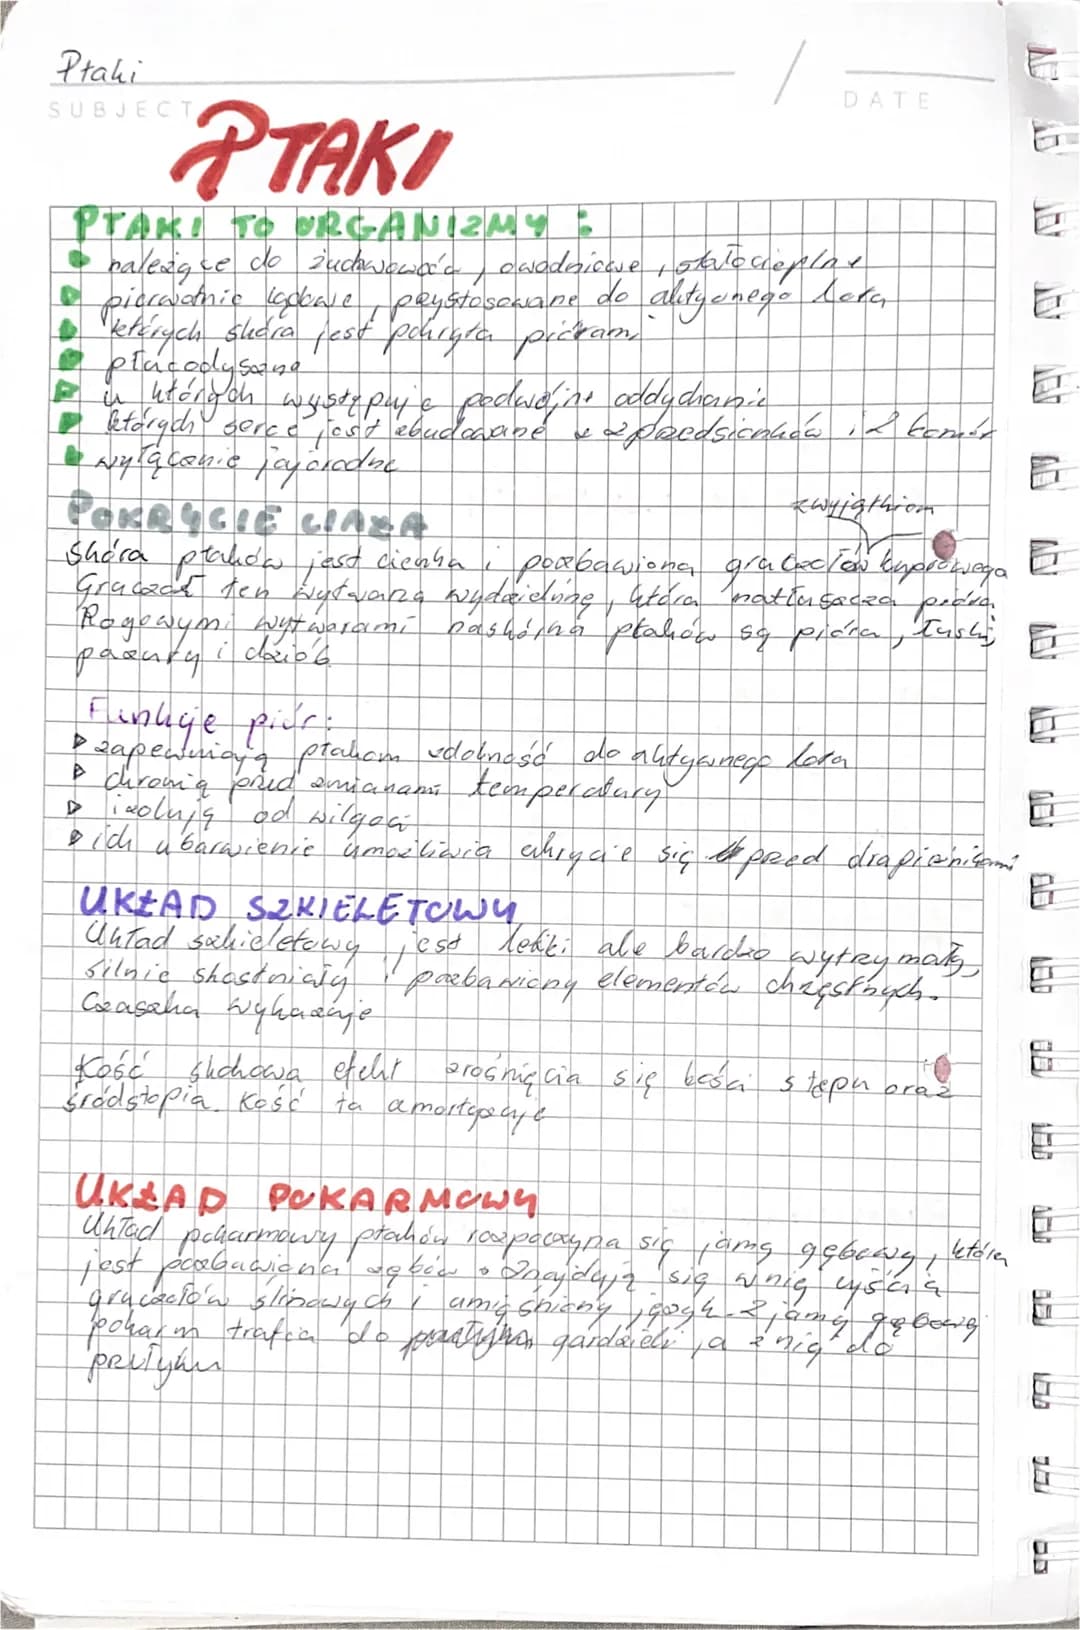 Ptaki
SUBJECT
DATE
PTAKI
PTAKI TO ORGANIZMY :
należące do żuchwowców, owodniowe, stałocieplne
pierwotnie lądowe, przystosowane do aktywnego lotu
których skóra jest pokryta piórami
płucodyszne
u których występuje podwójne oddychanie
których serce jest zbudowane z 2 przedsionków i 2 komór
wyłącznie jajorodne
POKRYCIE CIAŁA
zwyjątkiem
Skóra ptaków jest cienka i pozbawiona gruczołów kuprowego
Gruczoł ten wytwarza wydzielinę, która natłuszcza pióra.
Rogowymi wytworami naskórka ptaków są pióra, łuski,
pazury i dziób.
Funkcje piór:
zapewniają ptakom zdolność do aktywnego lotu
chronią przed zmianami temperatury
izolują od wilgoci
ich ubarwienie umożliwia ukrycie się przed drapieżnikami
UKŁAD SZKIELETOWY
Układ szkieletowy jest lekki ale bardzo wytrzymały,
silnie skostniały i pozbawiony elementów chrzęstnych.
Czaszka wykazuje
Kość skokowa efekt zrośnięcia się kości stępu oraz
śródstopia. Kość ta amortyzuje
UKŁAD POKARMOWY
Układ pokarmowy ptaków rozpoczyna się jamą gębową, która
jest pozbawiona zębów. Znajdują się w nią ujścia
gruczołów ślinowych i umięśniony język. Z jamy gębowej
pokarm trafia do gardzieli, a z nią do
przełyku